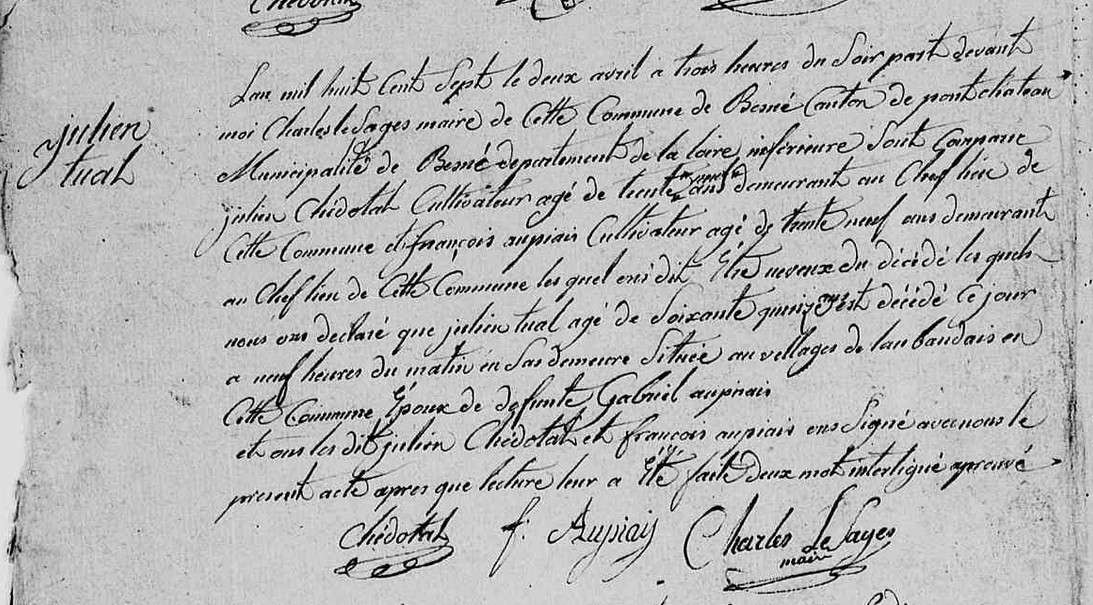 Chédotal
julien
tual
Lan mil huit Cent Sept le deux avril a trois heures du Soir part devant
moi Charles le Sages maire de Cette Commune de Besné Canton de pontchateau
Municipalité de Besné departement de la loire inférieure Sont Comparu
julien Chédotal Cultivateur agé de trente ans demeurant au Chef lieu de
Cette Commune et françois aupiais Cultivateur agé de trente neuf ans demeurant
au Chef lieu de Cette Commune les quel ons dit Etre neveux du décédé les quels
nous ons declaré que julien tual agé de Soixante quinze est décédé Ce jour
a neuf heures du matin en Sas demeure Située au villages de lau baudais en
Cette Commune Époux de defunte Gabriel aupiais
et ons les dit julien Chédotal et françois aupiais ons Signé avecnous le
présent acte apres que lecture leur a Été faite deux mot interligné aprouvé
Chédotal f. Aupiais Charles LeSages
maire